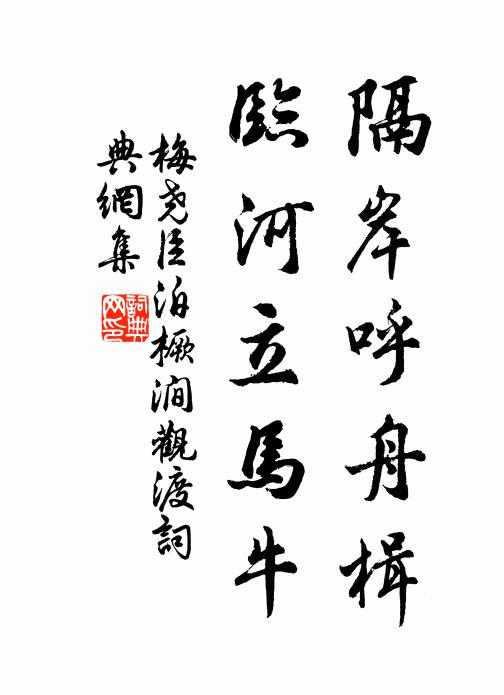 隔岸呼舟楫
臨河立馬牛
梅堯臣泊橛澗觀渡詞
典網集
詞典
网印